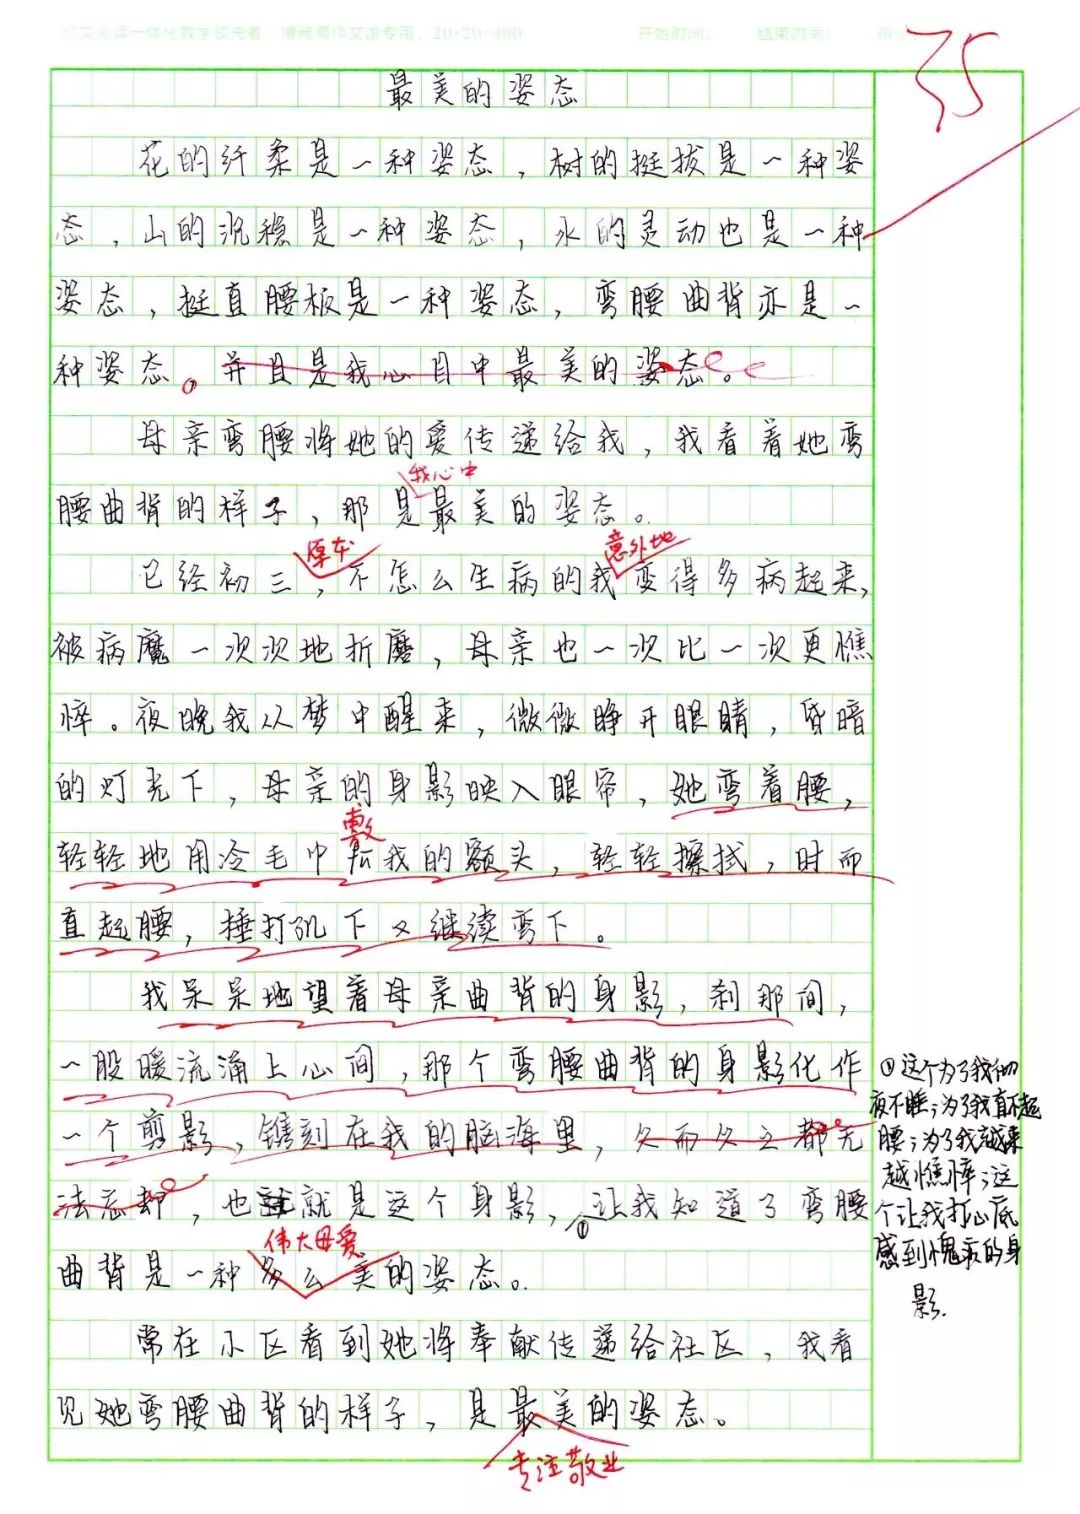 作文阅读一体化教学领先者，博冠易作文馆专用，20×20=400 开始时间： 结束时间： 得分
35
最美的姿态
花的纤柔是一种姿态，树的挺拔是一种姿
态，山的沉稳是一种姿态，水的灵动也是一种
姿态，挺直腰板是一种姿态，弯腰曲背亦是一
种姿态。并且是我心目中最美的姿态。
母亲弯腰将她的爱传递给我，我看着她弯
我心中
腰曲背的样子，那是最美的姿态。
原本 意外地
已经初三，不怎么生病的我变得多病起来，
被病魔一次次地折磨，母亲也一次比一次更憔
悴。夜晚我从梦中醒来，微微睁开眼睛，昏暗
的灯光下，母亲的身影映入眼帘，她弯着腰，
敷
轻轻地用冷毛巾 我的额头，轻轻擦拭，时而
直起腰，捶打几下又继续弯下。
我呆呆地望着母亲曲背的身影，刹那间，
一股暖流涌上心间，那个弯腰曲背的身影化作
一个剪影，镌刻在我的脑海里，久而久之都无
法忘却，也就是这个身影，①让我知道了弯腰
伟大母爱
曲背是一种多么美的姿态。
①这个为了我彻
夜不睡；为了我直不起
腰；为了我越来
越憔悴；这
个让我打心底
感到愧疚的身
影.
常在小区看到她将奉献传递给社区，我看
见她弯腰曲背的样子，是最美的姿态。
专注敬业